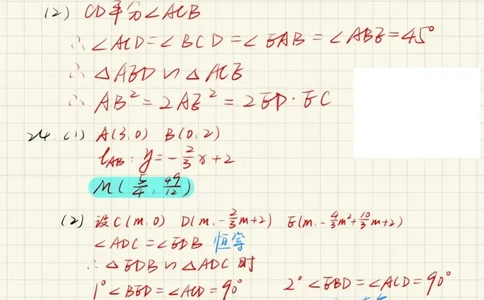 (2) CD平分∠ACB
∴ ∠ACD=∠BCD=∠EAB=∠ABE=45°
∴ △AED∽△ACE
∴ AB²=2AE²=2ED·EC
24. (1) A(3,0) B(0,2)
l_AB: y=-2/3x+2
M(5/4, 49/12)
(2) 设C(m,0) D(m,-2/3m+2) E(m,-4/3m²+10/3m+2)
∠ADC=∠EDB 恒等
∴ △EDB∽△ADC时
1° ∠BED=∠ACD=90° 2° ∠EBD=∠ACD=90°